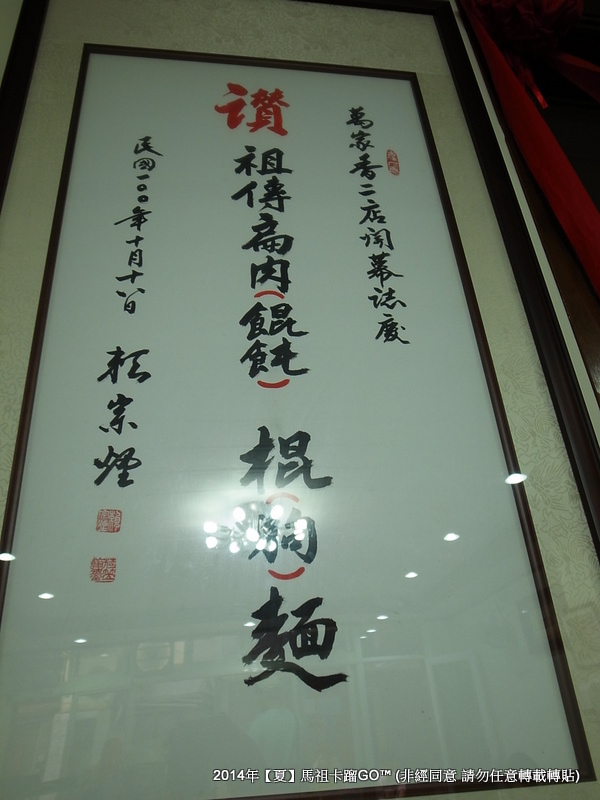 萬家香二店開幕誌慶
讚
祖傳扁肉(餛飩)
棍(
)麵
民國一〇〇年十月十八日
2014年【夏】馬祖卡蹓GO™ (非經同意 請勿任意轉載轉貼)